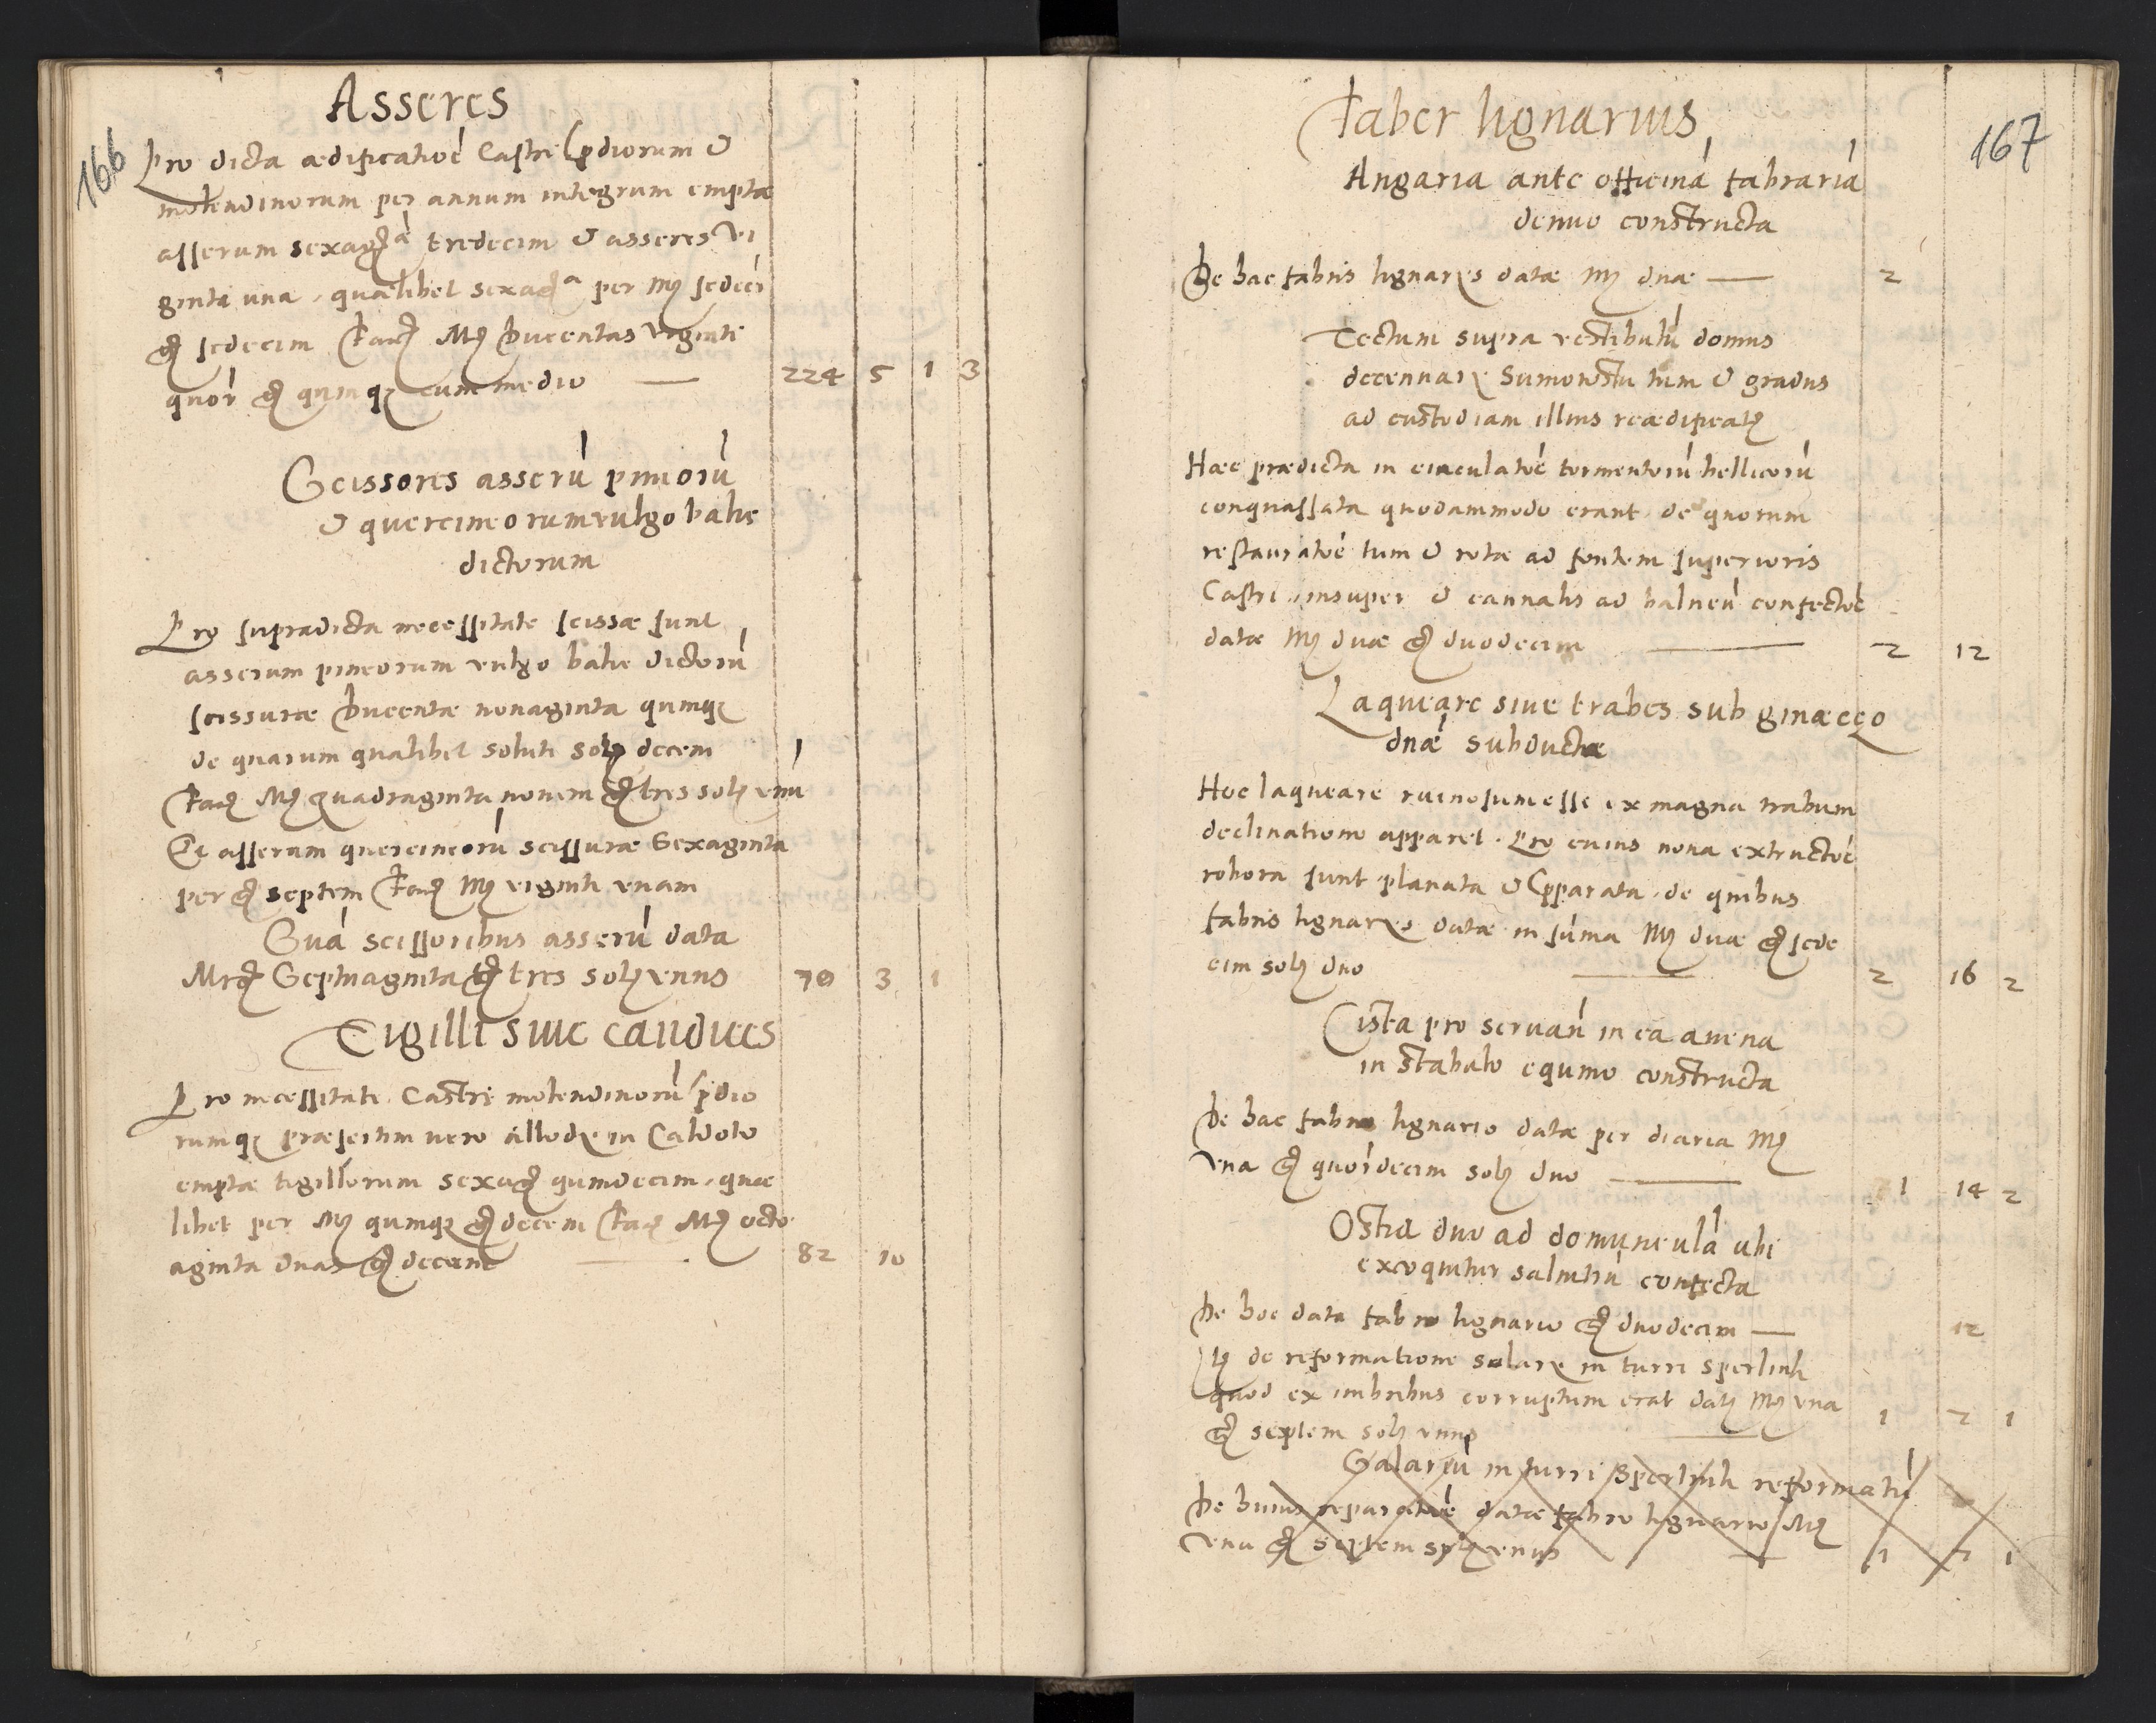 Asseres
166
Pro dicta ædificatioē Castri p̄diorum &
molendinorum per annum integrum emptæ
asserum sexagᵃ tredecim & asseres vi
ginti una, qualibet sexagᵃ per Mȝ sedeci
gȝ sedecim facȝ Mȝ Ducentas viginti
quor gȝ quinqȝ cum medio — 224 5 1 3
Scissores asserū piniorū
& quercineorum vulgo balie
dictorum
Pro supradicta necessitate scissæ sunt
asserum pineorum vulgo balie dictorū
scissuræ Ducentæ nonaginta quinqȝ
de quarum qualibet soluti solȝ decem
facȝ Mȝ quadraginta novem gȝ tres solȝ vnū
Et asserum quercineorū scissuræ Sexaginta
per gȝ septem facȝ Mȝ viginti vnam
Suā scissoribus asserū data
Mrȝ Septuaginta gȝ tres solȝ vnus 70 3 1
Tigilli sive canduces
Pro necessitate Castri molendinorū p̄dio
rumqȝ præsertim vero allodȝ in Caldolo
emptæ tigillorum sexagȝ quindecim, quæ
libet per Mȝ quinqȝ gȝ decem facȝ Mȝ octo
aginta duas gȝ decem — 82 10
167
Faber lignarius
Angaria ante officinā fabrariā
denuo constructa
De hac fabris lignarȝs datæ Mȝ duæ — 2
Tectum supra vestibulū domus
decennarȝ tum & gradus
ad custodiam illius reædificatȝ
Hæc prædicta in eiaculatoē tormentorū bellicorū
conquassata quodammodo erant, de quorum
restauratoē tum & rotæ ad fontem superioris
Castri, insuper & cannalis ad balneū confectoē
datæ Mȝ duæ gȝ duodecim — 2 12
Laqueare sive trabes sub ginæceo
dnæ subductæ
Hoc laqueare ruinosum esse ex magna trabum
declinatione apparet. Pro cuius nova extructoē
robora sunt planata & p̄parata, de quibus
fabris lignarȝs datæ in sūma Mȝ duæ gȝ sede
cim solȝ duo — 2 16 2
Cista pro servan̄ in ea avena
in stabulo equino constructa
De hac fabro lignario datæ per diaria Mȝ
vna gȝ quordecim solȝ duo — 1 14 2
Ostia duo ad domunculā ubi
excoquitur salnitrū confecta
De hoc data fabro lignario gȝ duodecim — 12
Itȝ de reformatione solarȝ in turri Sperlink
quod ex imbribus corruptum erat datȝ Mȝ vna
gȝ septem solȝ vnus — 1 7 1
Salariū in turri Sperlink reformatū
De huius reparatoē datæ fabro lignario Mȝ
vna gȝ septem solȝ vnus — 1 7 1